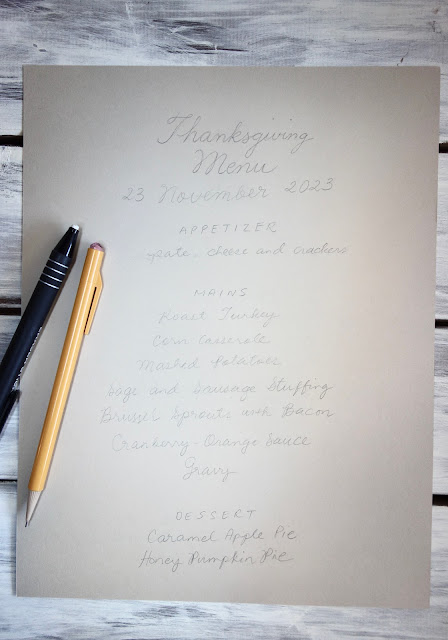 Thanksgiving
Menu
23 November 2023
APPETIZER
pate, cheese and crackers
MAINS
Roast Turkey
Corn Casserole
Mashed Potatoes
Sage and Sausage Stuffing
Brussel Sprouts with Bacon
Cranberry-Orange Sauce
Gravy
DESSERT
Caramel Apple Pie
Honey Pumpkin Pie